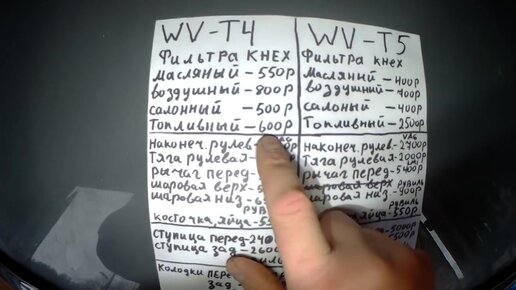 WV-T4
ФИЛЬТРА КНЕХ
МАСЛЯНЫЙ - 550Р
ВОЗДУШНЫЙ - 800Р
САЛОННЫЙ - 500Р
ТОПЛИВНЫЙ - 600Р
НАКОНЕЧ. РУЛЕВ.
ТЯГА РУЛЕВАЯ -
РЫЧАГ ПЕРЕД
ШАРОВАЯ ВЕРХ - 5
ШАРОВАЯ НИЗ -
КОСТОЧКА, ЯЙЦА - 55
СТУПИЦА ПЕРЕД - 240
СТУПИЦА ЗАД. - 2600
КОЛОДКИ ПЕРЕ
ЗАД.
WV-T5
ФИЛЬТРА КНЕХ
МАСЛЯНЫЙ - 400Р
ВОЗДУШНИЙ - 700Р
САЛОННЫЙ - 400Р
ТОПЛИВНЫЙ - 2500Р
VAG
НАКОНЕЧ. РУЛЕВ. - 2700Р
ТЯГА РУЛЕВАЯ - 2000Р
LMI
РЫЧАГ ПЕРЕД - 5400Р
ШАРОВАЯ ВЕРХ РУВИЛЬ
ШАРОВАЯ НИЗ - 900Р
РУВИЛЬ
ЯЙЦА - 550Р
- 5000Р